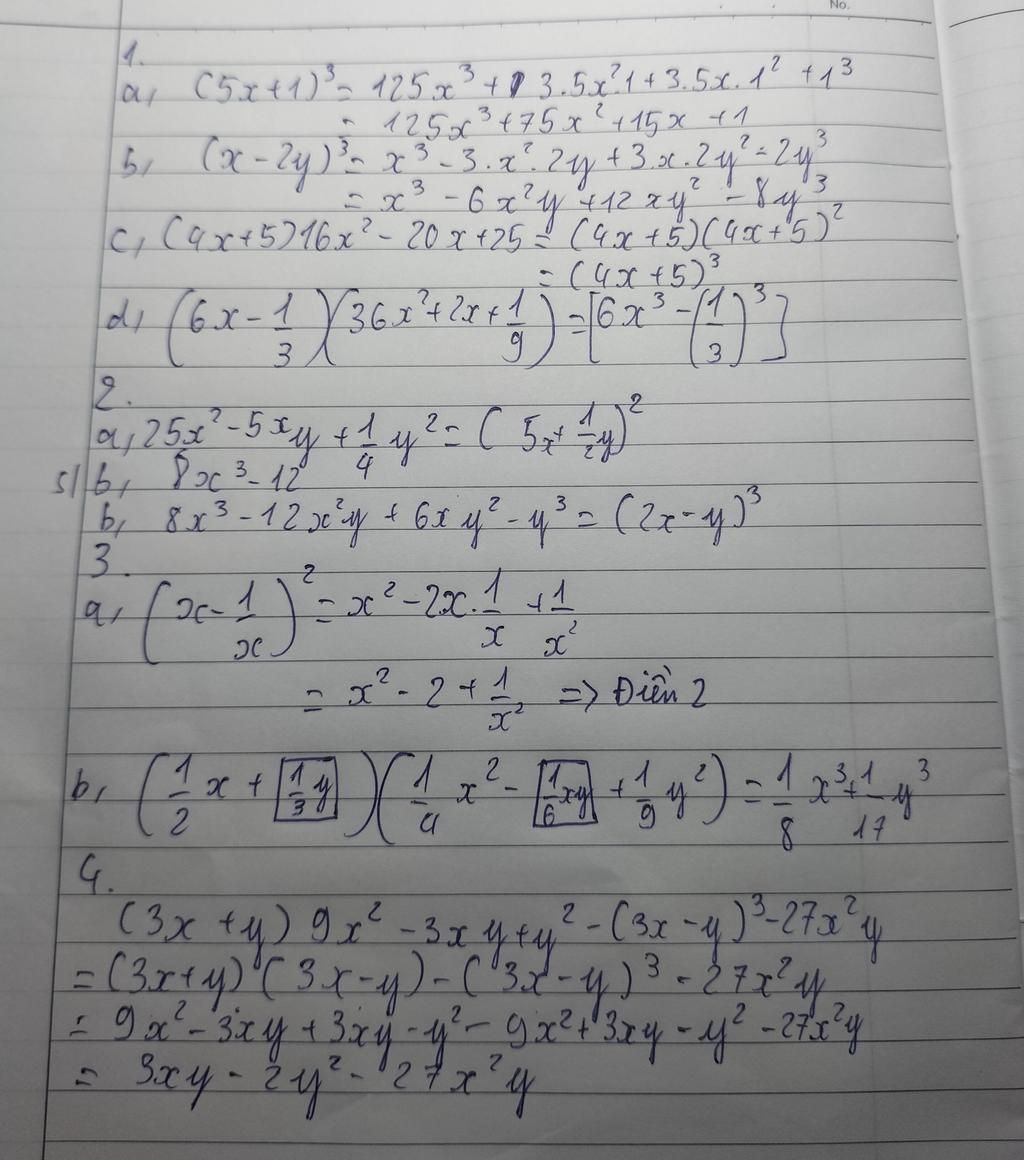 No.
1.
a, (5x+1)³ = 125x³ + 3.5x².1 + 3.5x.1² + 1³
= 125x³ + 75x² + 15x + 1
b, (x - 2y)³ = x³ - 3.x².2y + 3.x.2y² - 2y³
= x³ - 6x²y + 12xy² - 8y³
c, (4x+5)16x² - 20x + 25 = (4x+5)(4x+5)²
= (4x+5)³
d, (6x - 1/3)(36x² + 2x + 1/9) = [6x³ - (1/3)³]
2.
a, 25x² - 5xy + 1/4 y² = (5x + 1/2 y)²
s/ b, 8x³ - 12
b, 8x³ - 12x²y + 6xy² - y³ = (2x - y)³
3.
a, (x - 1/x)² = x² - 2x.1/x + 1/x²
= x² - 2 + 1/x² => Điền 2
b, (1/2 x + 1/3 y)(1/4 x² - 1/6 xy + 1/9 y²) = 1/8 x³ + 1/17 y³
4.
(3x + y) 9x² - 3xy + y² - (3x - y)³ - 27x²y
= (3x+y) (3x - y) - (3x - y)³ - 27x²y
= 9x² - 3xy + 3xy - y² - 9x² + 3xy - y² - 27x²y
= 3xy - 2y² - 27x²y